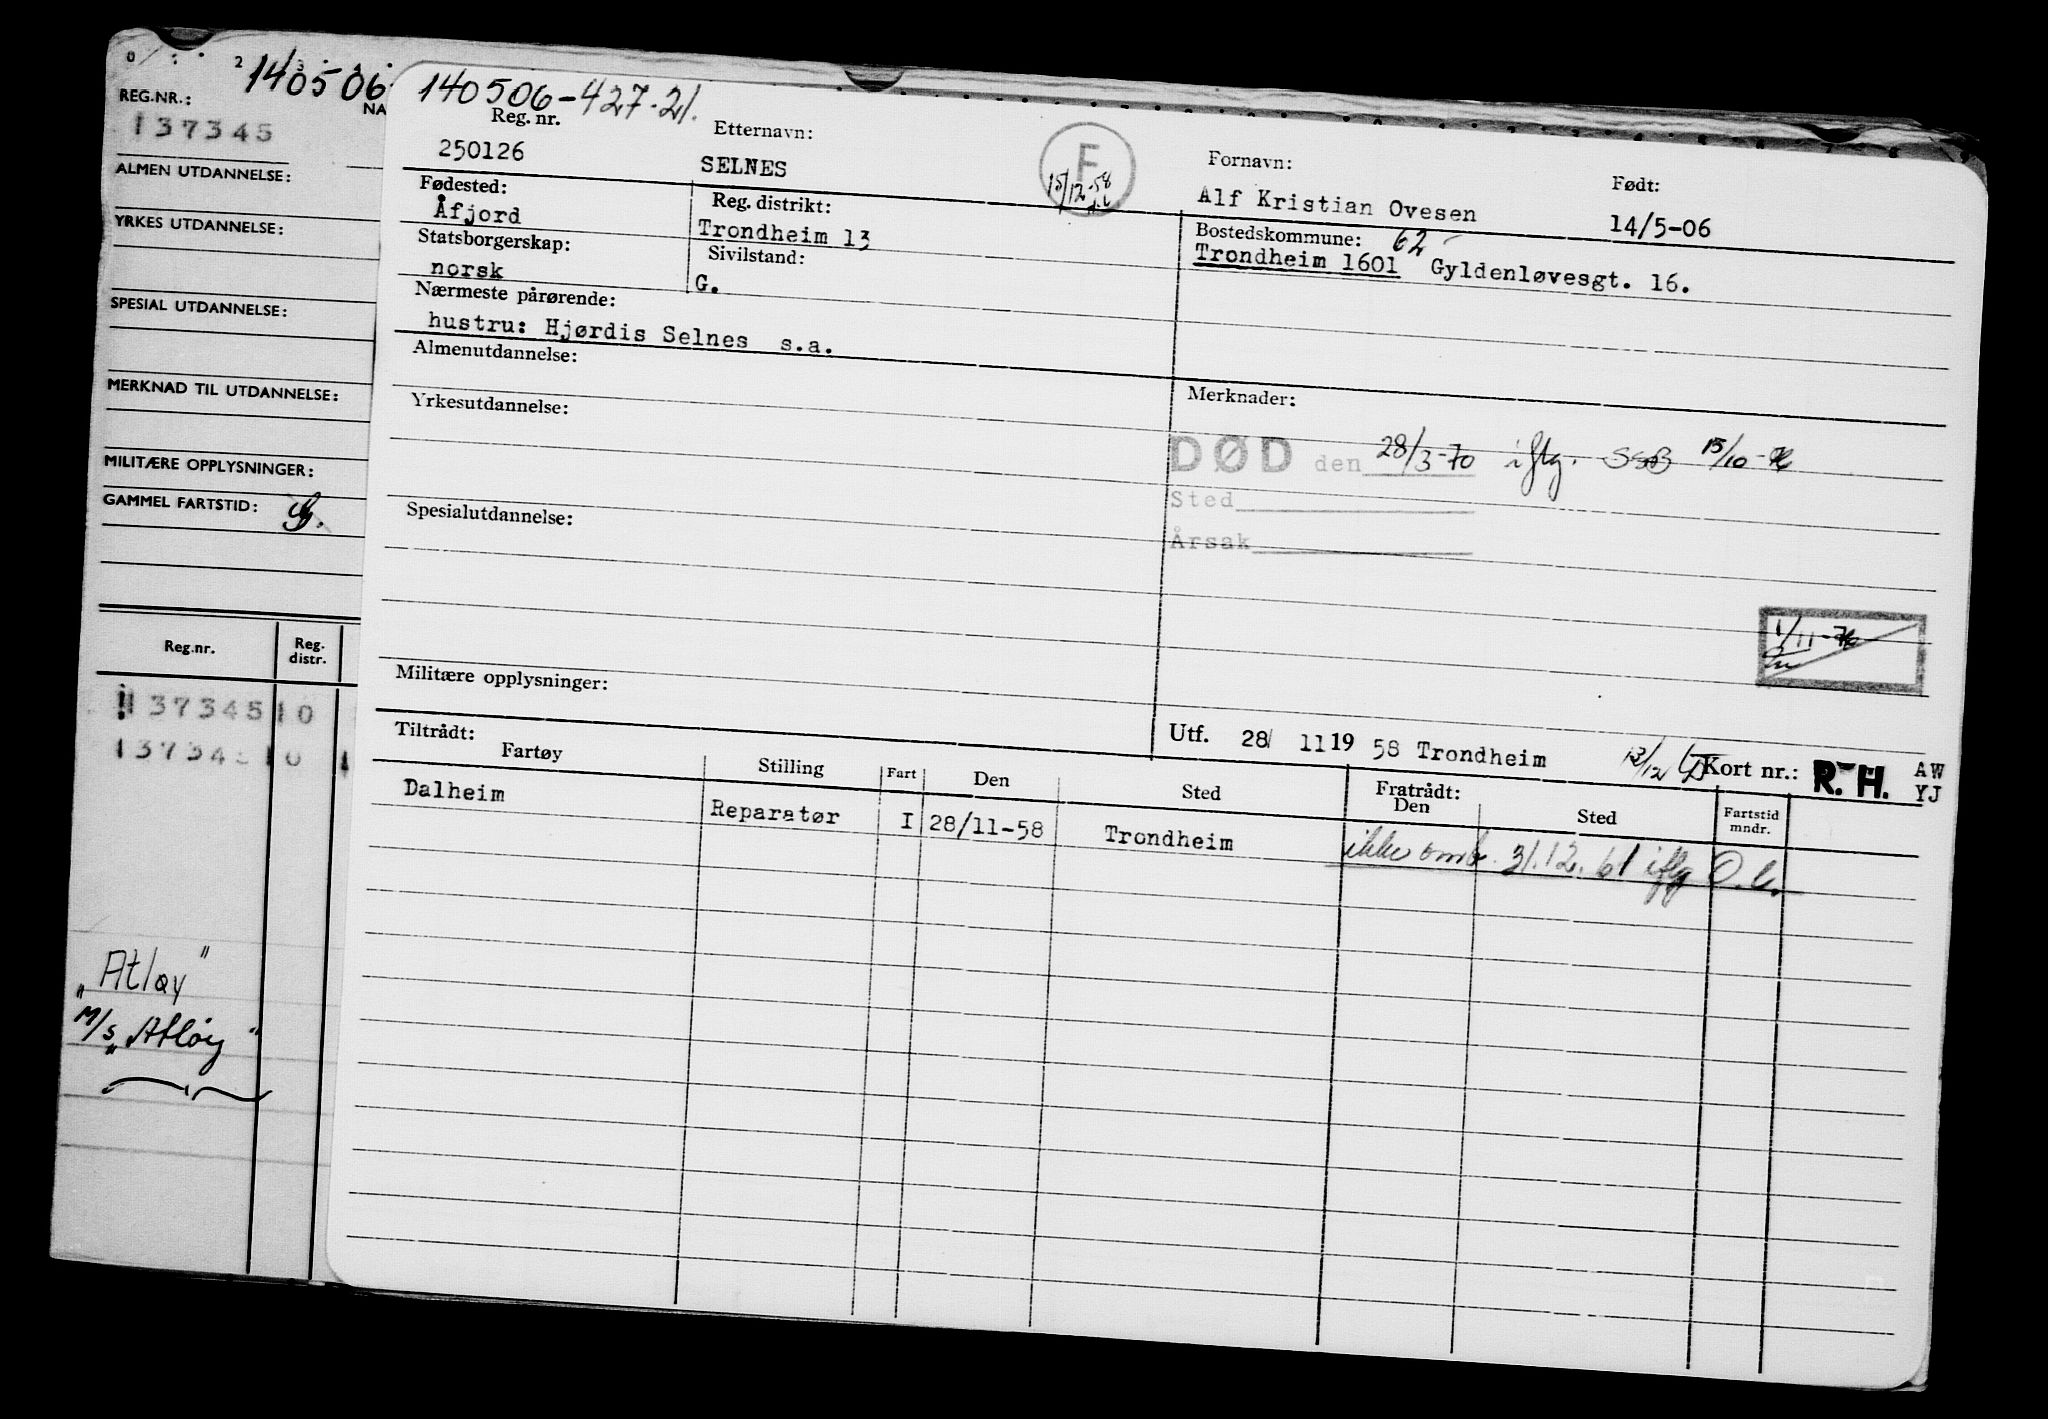 140506
REG.NR.:
NA
137345
ALMEN UTDANNELSE:
YRKES UTDANNELSE:
SPESIAL UTDANNELSE:
MERKNAD TIL UTDANNELSE:
MILITÆRE OPPLYSNINGER:
GAMMEL FARTSTID:
Reg.nr. Reg. distr.
137345 10
137345 10
"Atløy"
M/S "Atløy"
140506-427.21.
Reg. nr. Etternavn: Fornavn: Født:
250126 SELNES F Alf Kristian Ovesen 14/5-06
15/12-58
Fødested: Reg. distrikt: Bostedskommune: 62
Åfjord Trondheim 13 Trondheim 1601 Gyldenløvesgt. 16.
Statsborgerskap: Sivilstand:
norsk G.
Nærmeste pårørende:
hustru: Hjørdis Selnes s.a.
Almenutdannelse: Merknader:
Yrkesutdannelse:
DØD den 28/3-70 iflg. SSB 15/10-
Sted
Årsak
Spesialutdannelse:
1/11-
Militære opplysninger:
Utf. 28/ 11 19 58 Trondheim 12/12 Kort nr.: R.H. AW
YJ
Tiltrådt: Fratrådt:
Fartøy Stilling Fart Den Sted Den Sted Fartstid mndr.
Dalheim Reparatør I 28/11-58 Trondheim ikke omb. 31.12.61 iflg O.l.